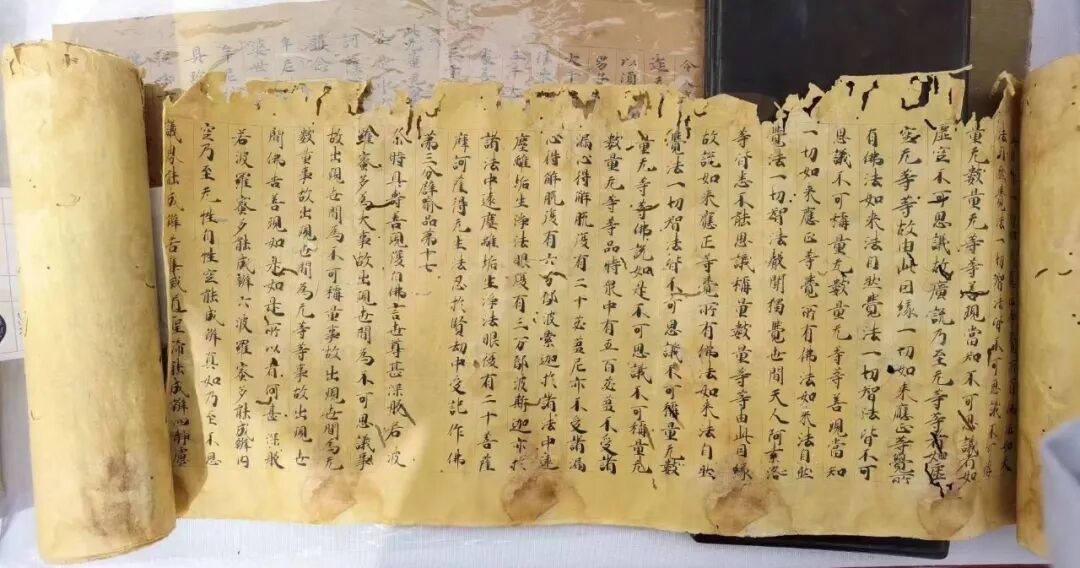 法自然覺法一切智法皆不可思議不可
量无數量无等等善現當知不可思議有如
虛空不可思議故廣說乃至无等等者如虛
空无等等故由此因緣一切如來應正等覺所
有佛法如來法自然覺法一切智法皆不可
思議不可稱量无數量无等等善現當知
一切如來應正等覺所有佛法如來法自然
覺法一切智法聲聞獨覺世間天人阿素洛
等皆悉不能思議稱量數量等等由此因緣
故說如來應正等覺所有佛法如來法自然
覺法一切智法皆不可思議不可稱量无數
量无等等佛說如是不可思議不可稱量无
數量无等等品時眾中有五百苾芻不受諸
漏心得解脫復有二十苾芻尼亦不受諸漏
心得解脫復有六万鄔波索迦於諸法中遠
塵離垢生淨法眼復有三万鄔波斯迦亦於
諸法中遠塵離垢生淨法眼復有二十菩薩
摩訶薩得无生法忍於賢劫中受記作佛
第三分譬喻品第十七
尒時具壽善現復白佛言世尊甚深般若波
羅蜜多為大事故出現世間為不可思議事
故出現世間為不可稱量事故出現世間為无
數量事故出現世間為无等等事故出現世
間佛告善現如是如是所以者何甚深般
若波羅蜜多能成辦六波羅蜜多能成辦內
空乃至无性自性空能成辦真如乃至不思
議界能成辦苦集滅道聖諦能成辦四靜慮